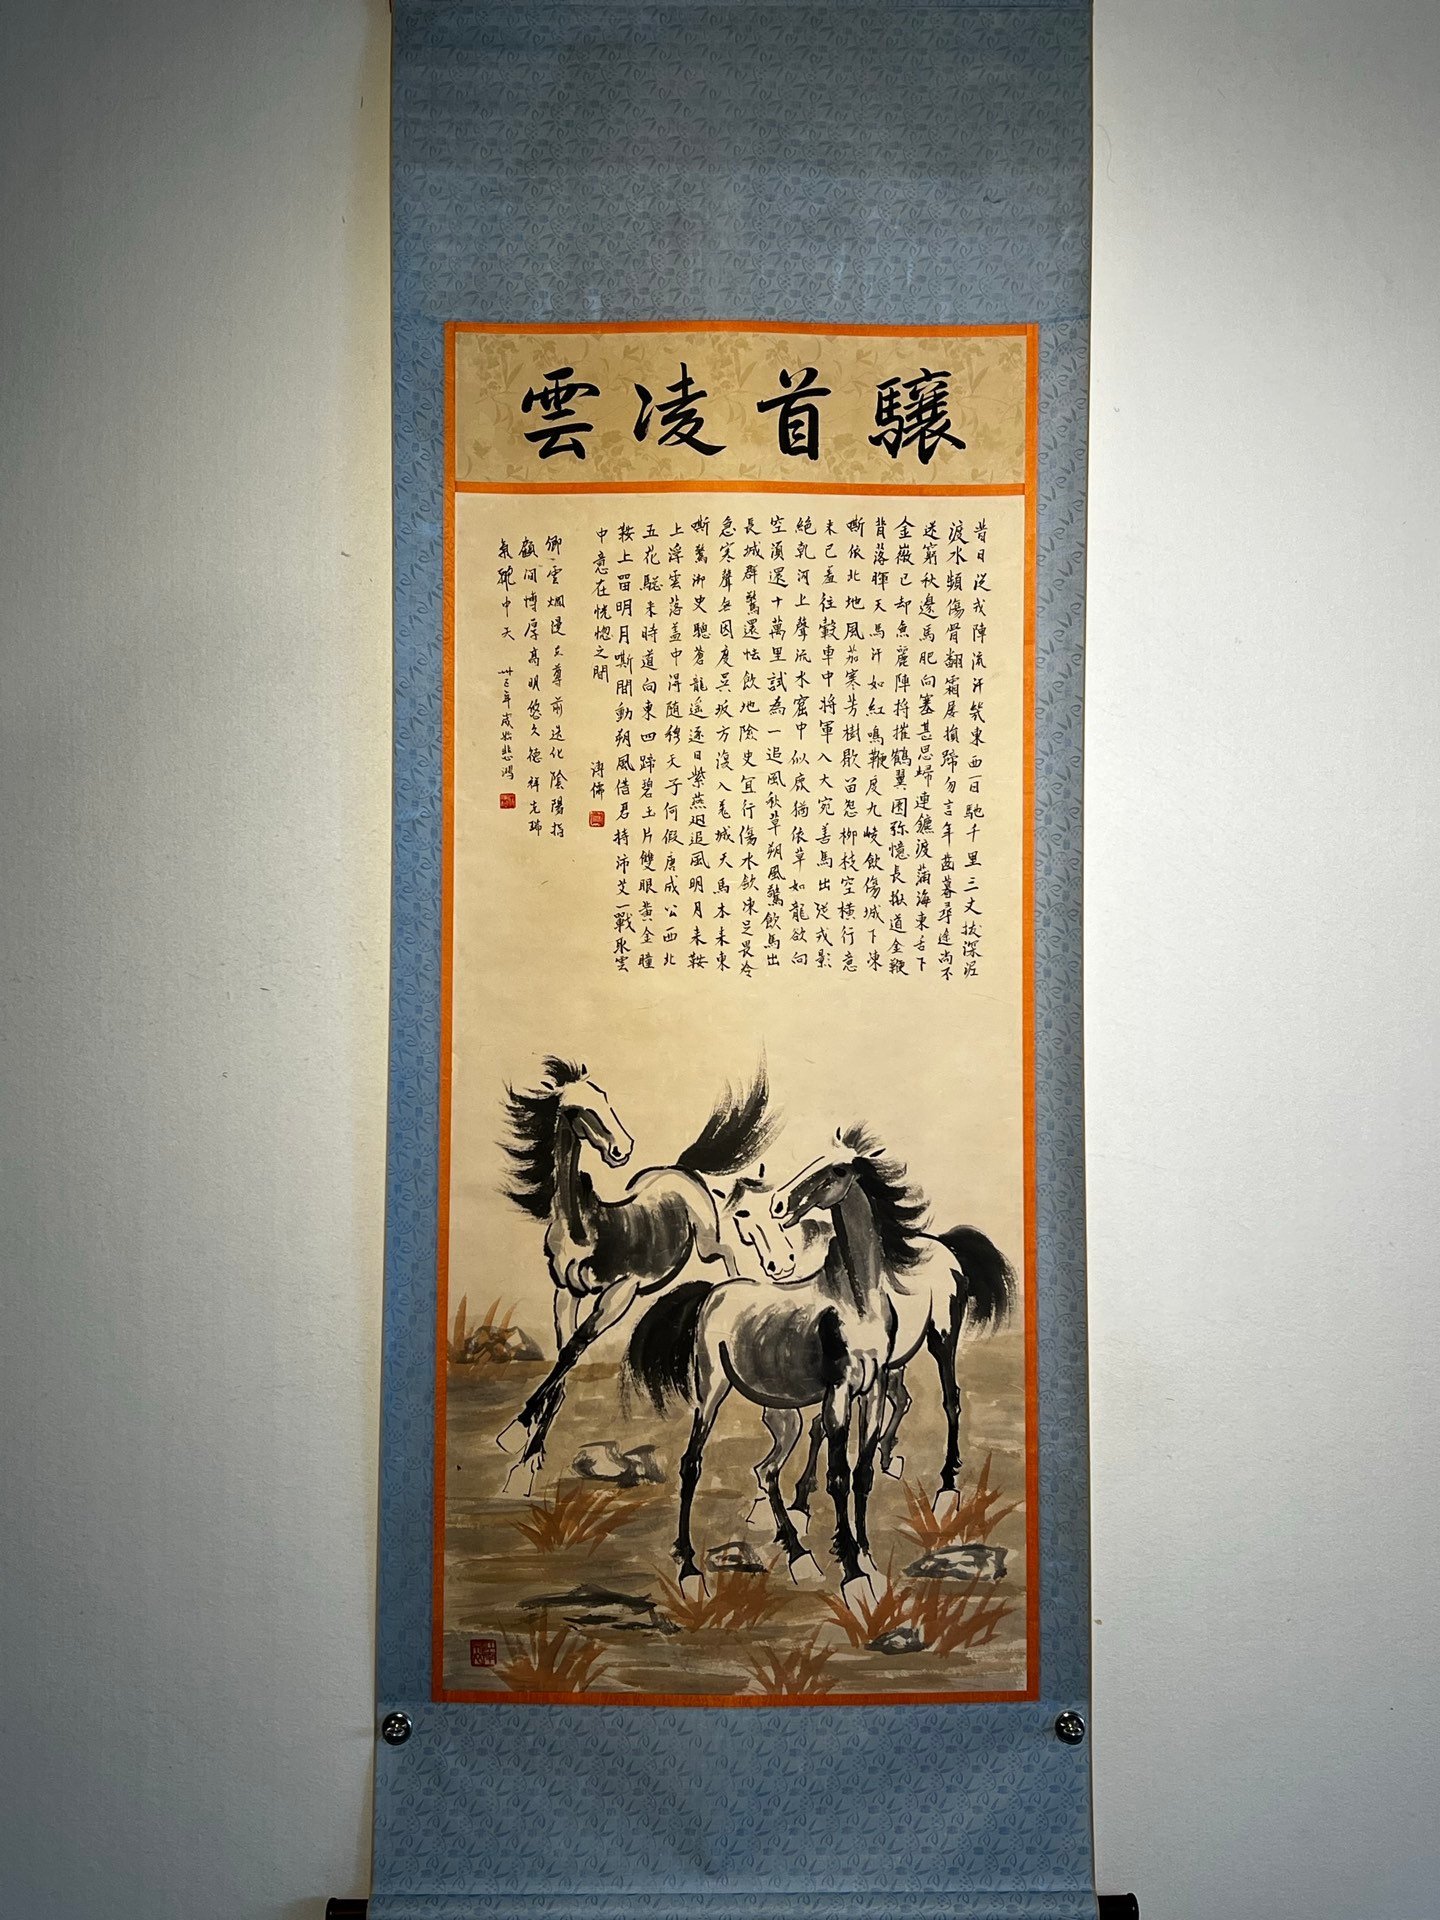 驤首凌雲
昔日從戎陣流汗幾東西一日馳千里三丈拔深泥
渡水頻傷骨翻霜屢損蹄勿言年齒暮尋途尚不
迷窮秋邊馬肥向塞甚思歸連鑣渡蒲海東舌下
金微已却魚麗陣將摧鶴翼圍彌憶長楸道金鞭
背落暉天馬汗如紅鳴鞭度九嵕飲傷城下凍
嘶依北地風笳寒芳樹歇笛怨柳枝空橫行意
未已羞往轂車中將軍入大宛善馬出從戎影
絕乾河上聲流水窟中似鹿猶依草如龍欲向
空須還十萬里試為一追風秋草朔風驚飲馬出
長城群驚還怯飲地險史宜行傷水飲凍足畏冷
急寒聲無因度吳坂方復入羌城天馬本來東
嘶驚御史驄蒼龍遙逐日紫燕迥追風明月來鞍
上浮雲落蓋中得隨穆天子何假唐成公西北
五花驄來時道向東四蹄碧玉片雙眼黃金瞳
鞍上留明月嘶間動朔風借君持沛艾一戰取雲
中意在恍惚之間
溥儒
卿雲烟漫 尊前造化陰陽指
顧間博厚高明悠久德祥光瑞
氣 中天 卅三年歲 悲鴻